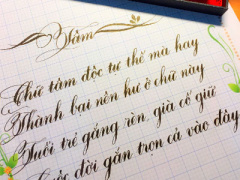 Tâm
Chữ tâm độc tự thế mà hay
Thành bại nên hư ở chữ này
Tuổi trẻ gắng rèn, già cố giữ
đời gắn trọn cả vào đây